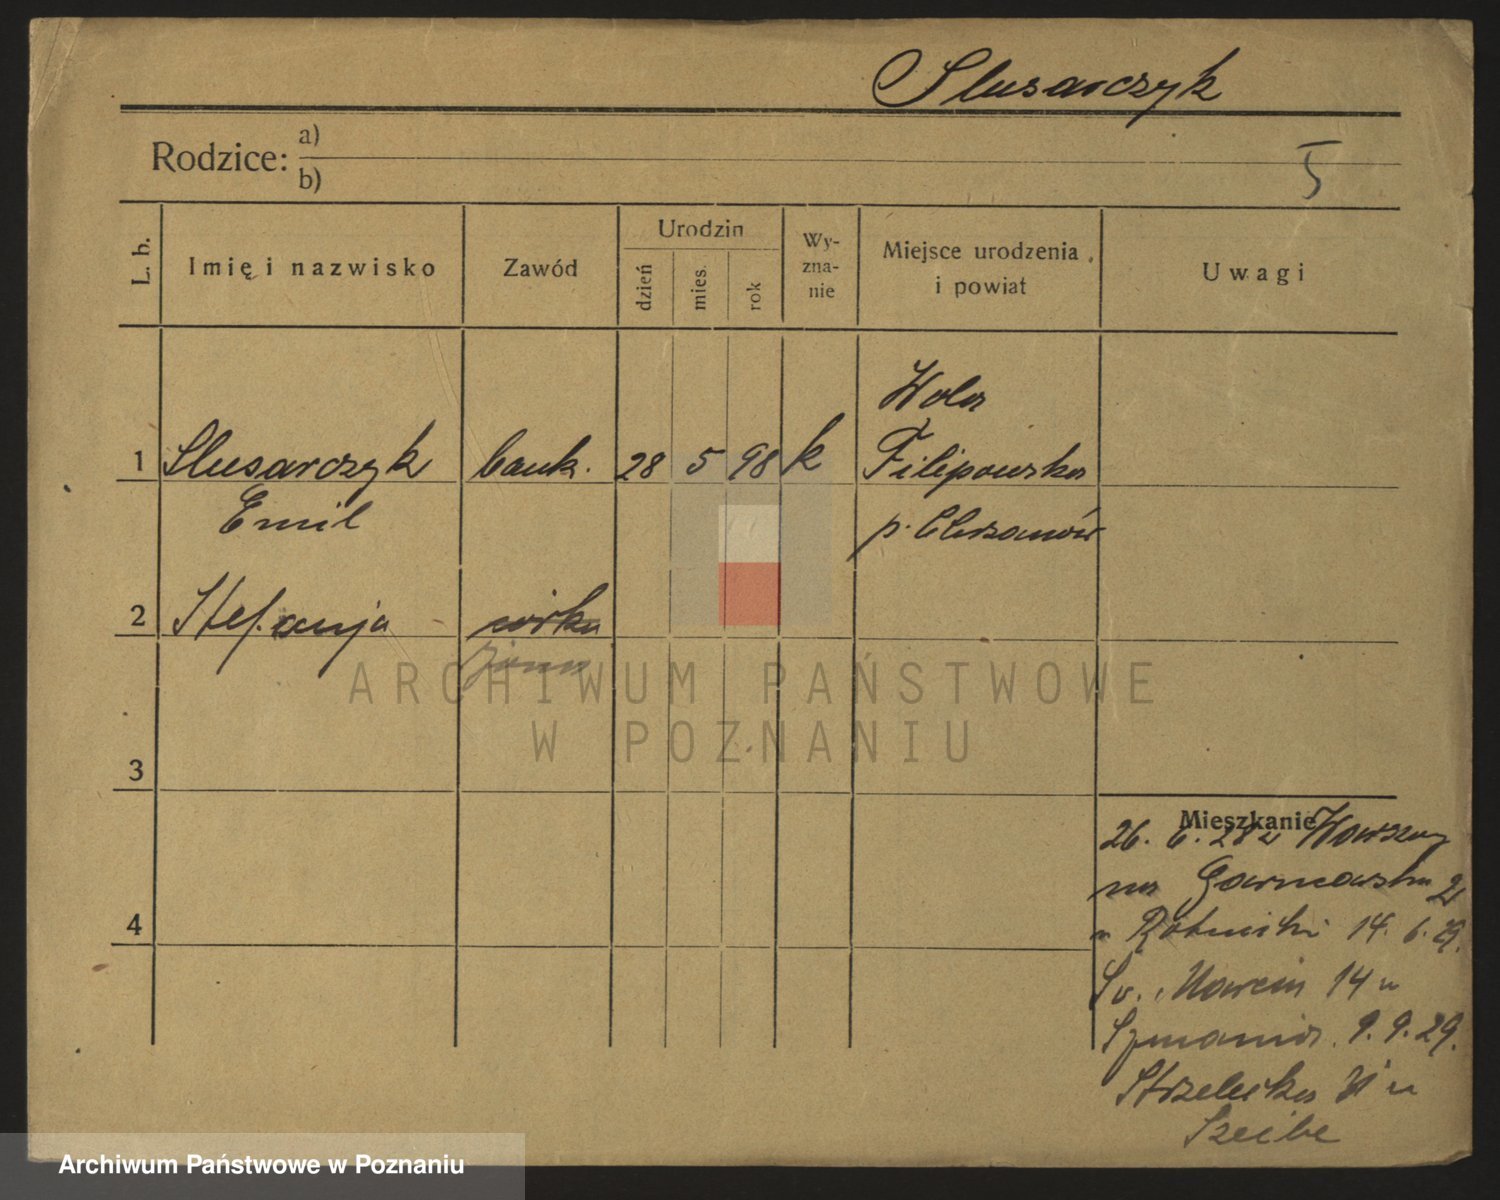 Slusarczyk
Rodzice: a)
b)
5
L. b.
Imię i nazwisko
Zawód
Urodzin
dzień
mies.
rok
Wy-
zna-
nie
Miejsce urodzenia
i powiat
Uwagi
1
Slusarczyk
Emil
bank.
28
5
98
k
Wola
Filipowska
p. Chrzanów
2
Stefanja
córka
żona
3
4
Mieszkanie
26. 6. 28 z Warszawy
na Garncarska 2
u 14. 6. 29.
Św. Marcin 14 u
Szmania. 9. 9. 29.
Strzelecka 31 u
Szeibe
ARCHIWUM PAŃSTWOWE
W POZNANIU
Archiwum Państwowe w Poznaniu